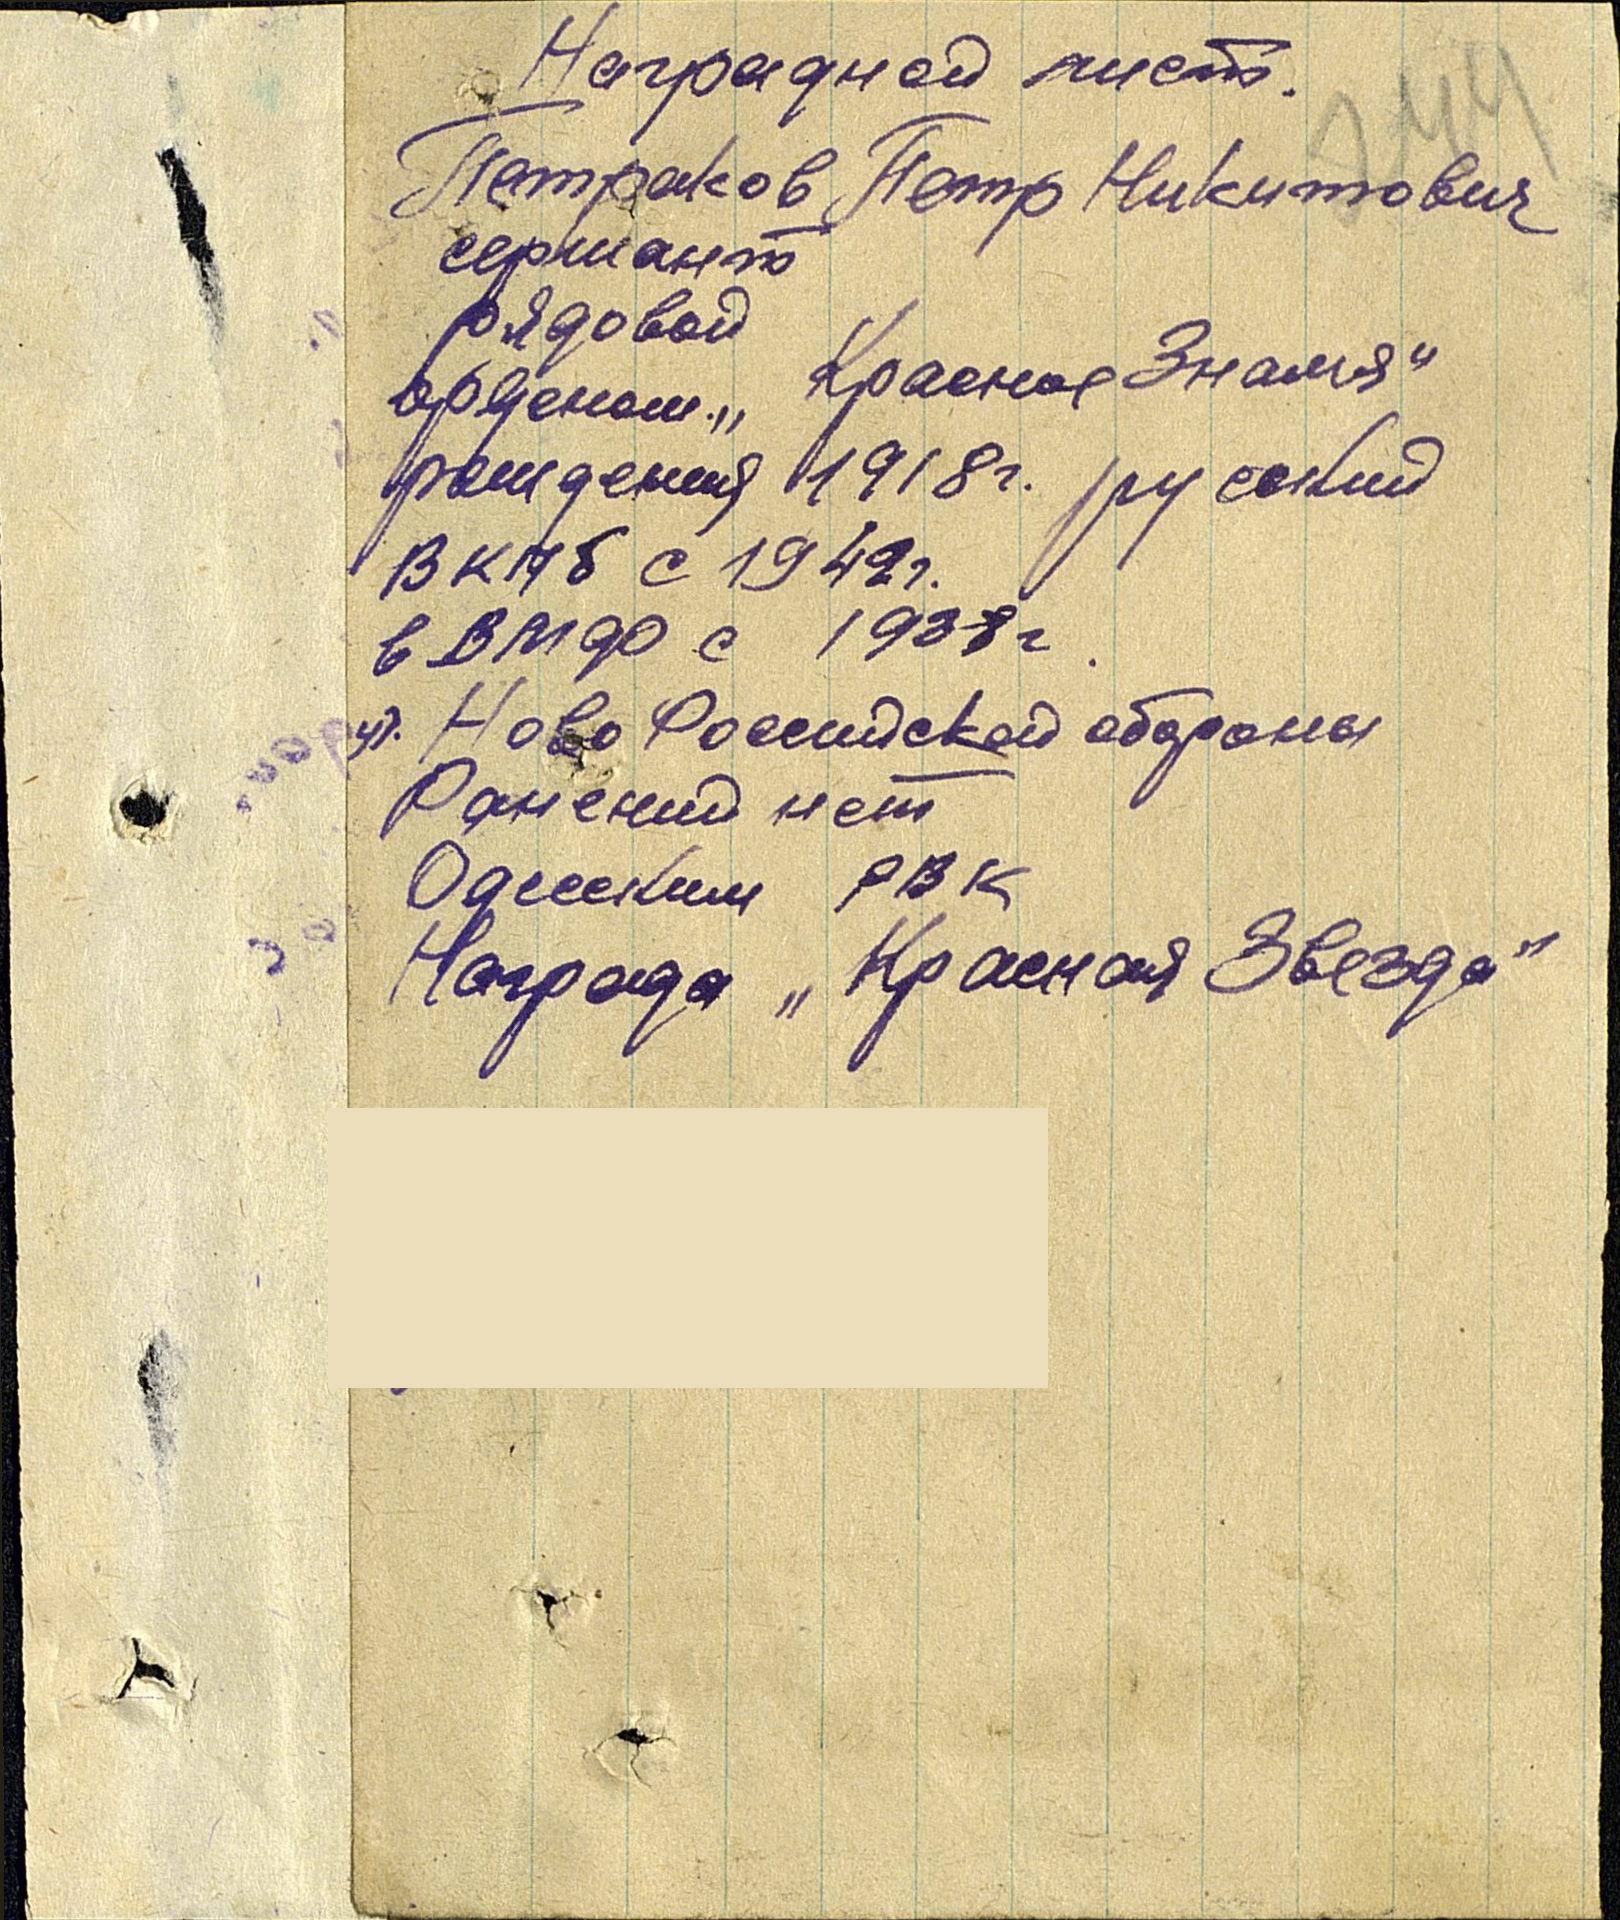 Наградной лист.
Петраков Петр Никитович
сержант
рядовой
орденом „Красное Знамя"
рождения 1918г. русский
ВКПб с 1942г.
в ВМФ с 1938г.
уч. Ново Российской обороны
Ранений нет
Одесским РВК
Награда „Красная Звезда"